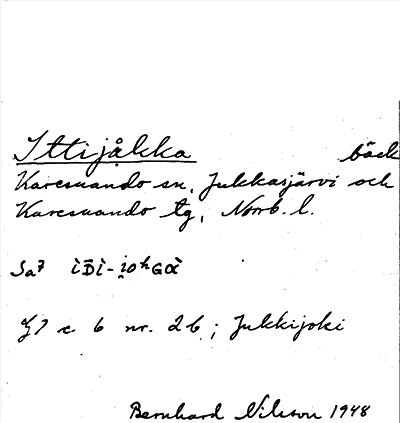 Ittijåkka bäck
Karesuando sn, Jukkasjärvi och
Karesuando tg, Norrb. l.
Sa7 ìBì-i̯oʰGὰ
ζ7 c 6 nr. 26 ; Jukkijoki
Bernhard Nilsson 1948